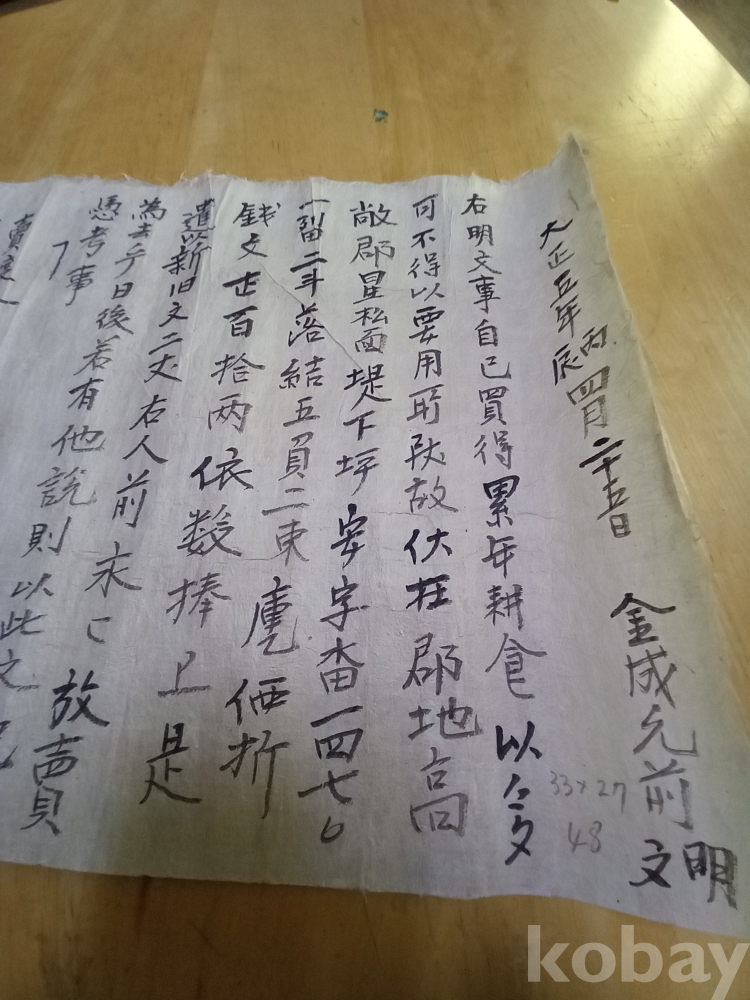 大正五年丙辰四月二十五日 金成元前 明文
右明文事自己買得累年耕食以多
可不得以要用所致故伏在郡地高
敞郡星松面堤下坪安字畓一四七
畓二斗落結五負二束庫価折
銭文七百拾両依数捧上是
遣以新旧文二丈右人前永〻放賣
為去乎日後若有他説則以此文
憑考事
33×27
48
kobay